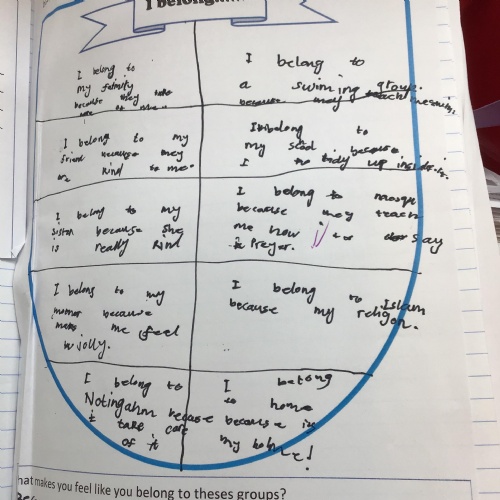 I belong......
I belong to
my
because they take
care of me.
I belong to
a swiming group.
because they teach me swim.
I belong to my
friend because they
are kind to me.
I belong to
my because
I tidy up inside it.
I belong to my
sister because she
is really kind
I belong to mosqe
because they teach
me how to say
a Prayer.
I belong to my
mother because
makes me feel
jolly.
I belong to Islam
because my religon.
I belong to
Notingahm becuase
i take care
of it
I belong
to home
because is
my home!
hat makes you feel like you belong to theses groups?